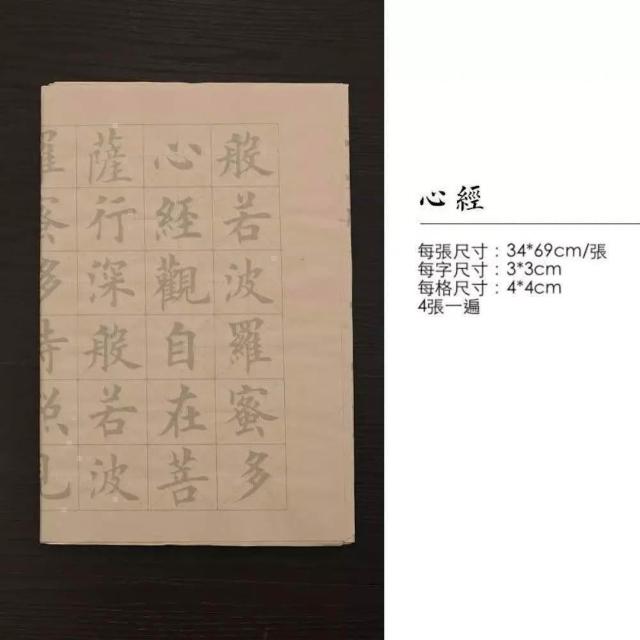 般若波羅蜜多
心經觀自在菩
薩行深般若波
羅蜜多時照見
心經
每張尺寸：34*69cm/張
每字尺寸：3*3cm
每格尺寸：4*4cm
4張一遍